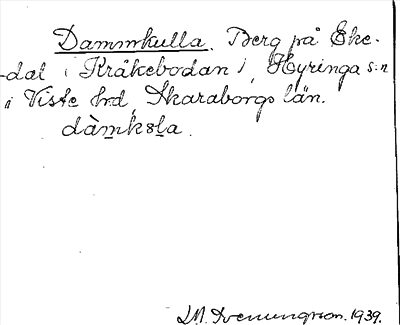 Dammkulla. Berg på Eke-
dal i Kråkebodan i, Hyringa s:n
i Viste hrd, Skaraborgs län.
dàmksla.
I.M. Svenungsson. 1939.